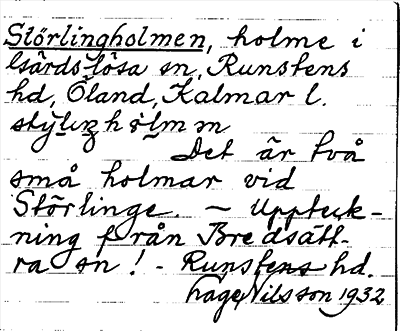 Störlingholmen, holme i
Gärdslösa sn, Runstens
hd, Öland, Kalmar l.
Det är två
små holmar vid
Störlinge. – Uppteck-
ning från Bredsätt-
ra sn! - Runstens hd.
Hage Nilsson 1932